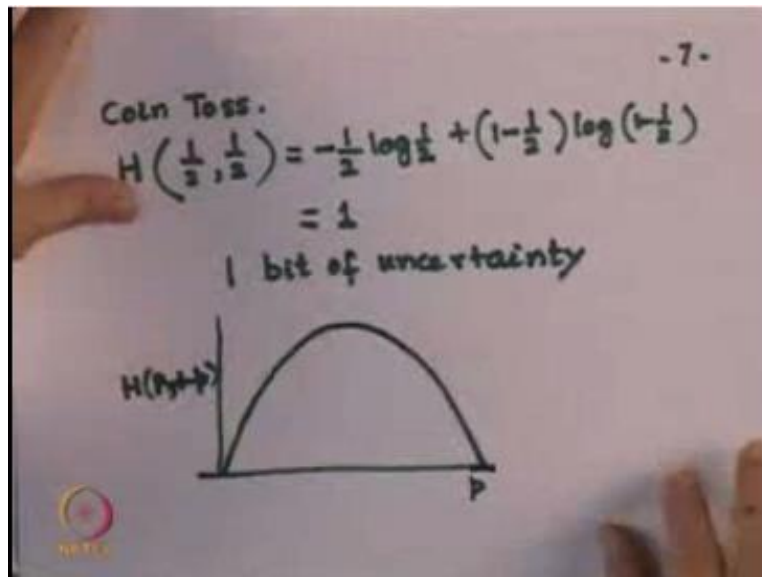 -7-
Coin Toss.
H(½,½) = -½ log ½ + (1-½) log (1-½)
= 1
1 bit of uncertainty
H(p,1-p)
p
NPTEL